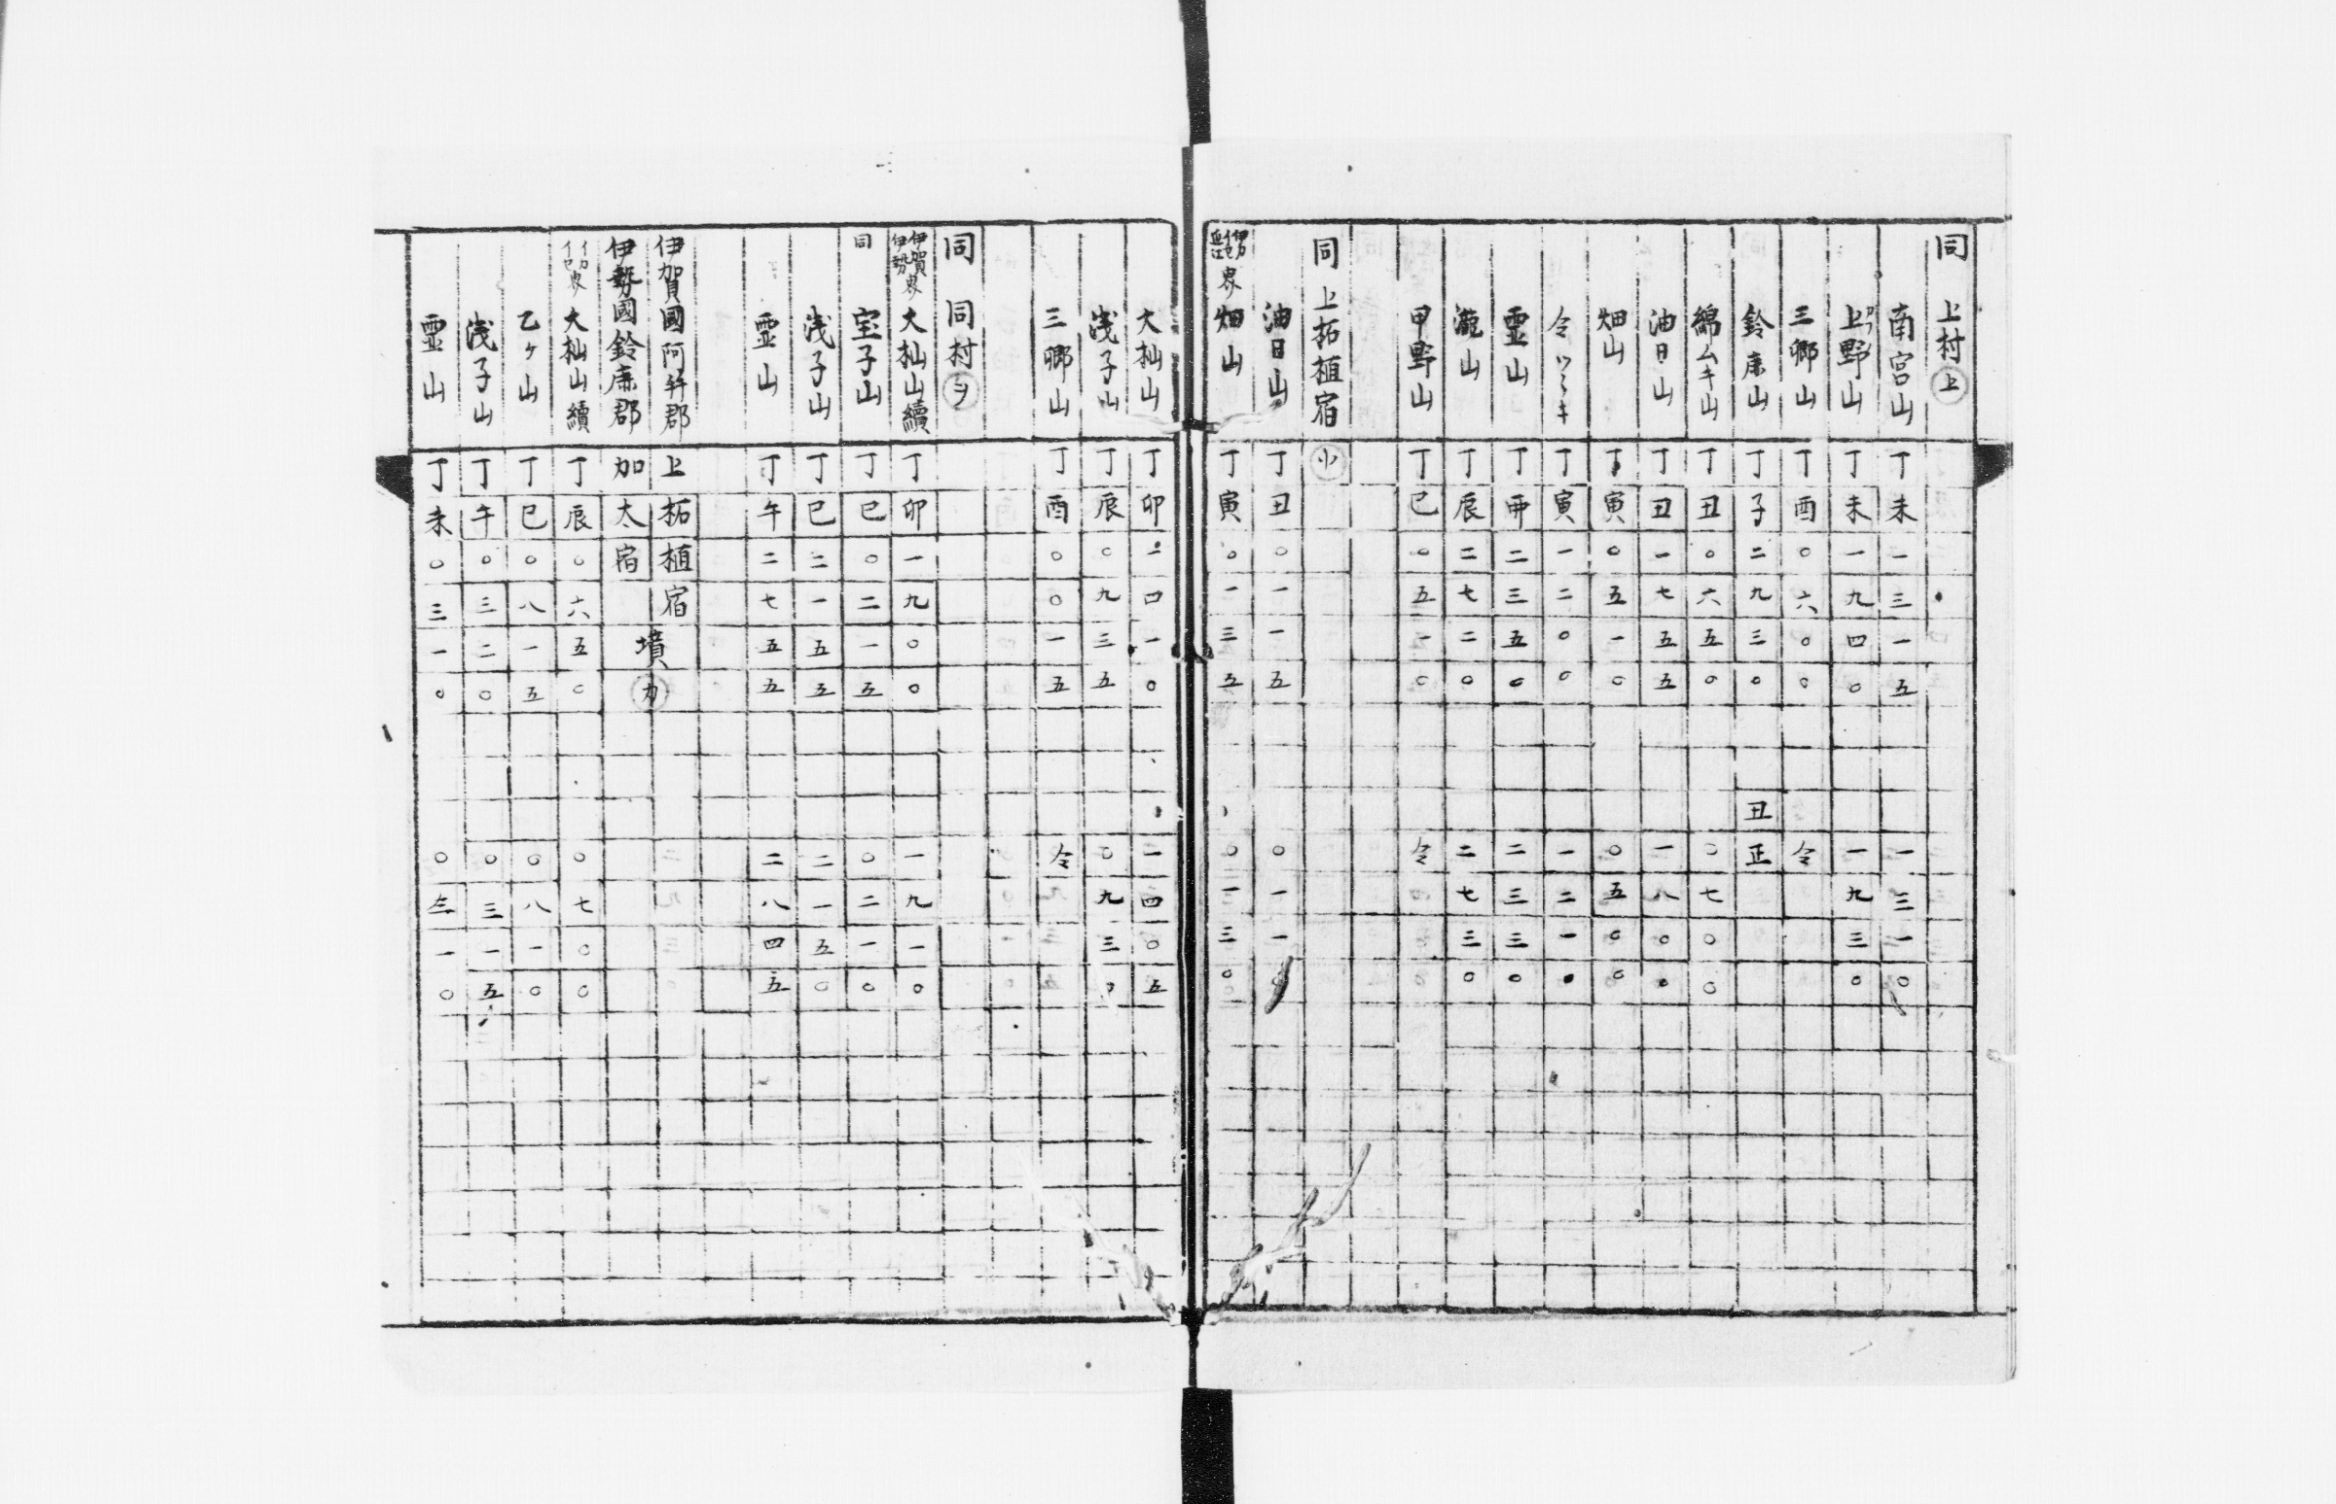 同 上村 上
南宮山 丁未一三一五 一三一〇
上野山 丁未一九四〇 一九三〇
三郷山 丁酉〇六〇〇 仝
鈴鹿山 丁子二九三〇 丑正
綿ムキ山 丁丑〇六五〇 〇七〇〇
油日山 丁丑一七五五 一八〇〇
畑山 丁寅〇五一〇 〇五〇〇
仝ツヽキ 丁寅一二〇〇 一二一〇
霊山 丁卯二三五〇 二三三〇
瀧山 丁辰二七二〇 二七三〇
甲野山 丁巳〇五一〇 仝
同 上拓植宿 小
油日山 丁丑〇一一五 〇一一〇
伊カイセ近江界畑山 丁寅〇一三五 〇一三〇
大杣山 丁卯一四一〇 一四〇五
浅子山 丁辰〇九三五 〇九三〇
三郷山 丁酉〇〇一五 仝
同 同村 ヲ
伊賀伊勢界大杣山續 丁卯一九〇〇 一九一〇
同 宝子山 丁巳〇二一五 〇二一〇
浅子山 丁巳二一五五 二一五〇
霊山 丁午二七五五 二八四五
伊賀國阿拜郡 上拓植宿
伊勢國鈴鹿郡 加太宿
墳 カ
イカイセ界大杣山續 丁辰〇六五〇 〇七〇〇
乙ヶ山 丁巳〇八一五 〇八一〇
浅子山 丁午〇三二〇 〇三一五
霊山 丁未〇三一〇 〇三一〇